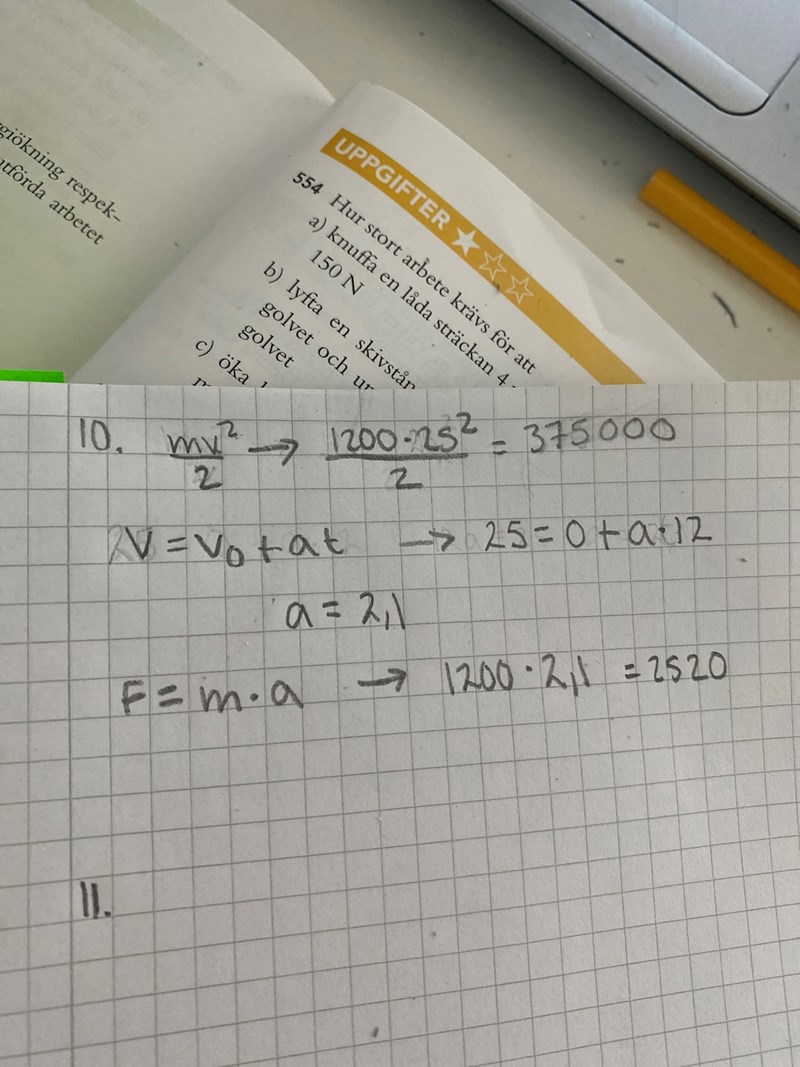 giökning respek-
utförda arbetet
UPPGIFTER ★☆☆
554 Hur stort arbete krävs för att
a) knuffa en låda sträckan 4
150 N
b) lyfta en skivstån
golvet och ur
golvet
c) öka
10. mv²/2 → 1200·25²/2 = 375000
V = V₀ + at → 25 = 0 + a·12
a = 2,1
F = m·a → 1200·2,1 = 2520
11.